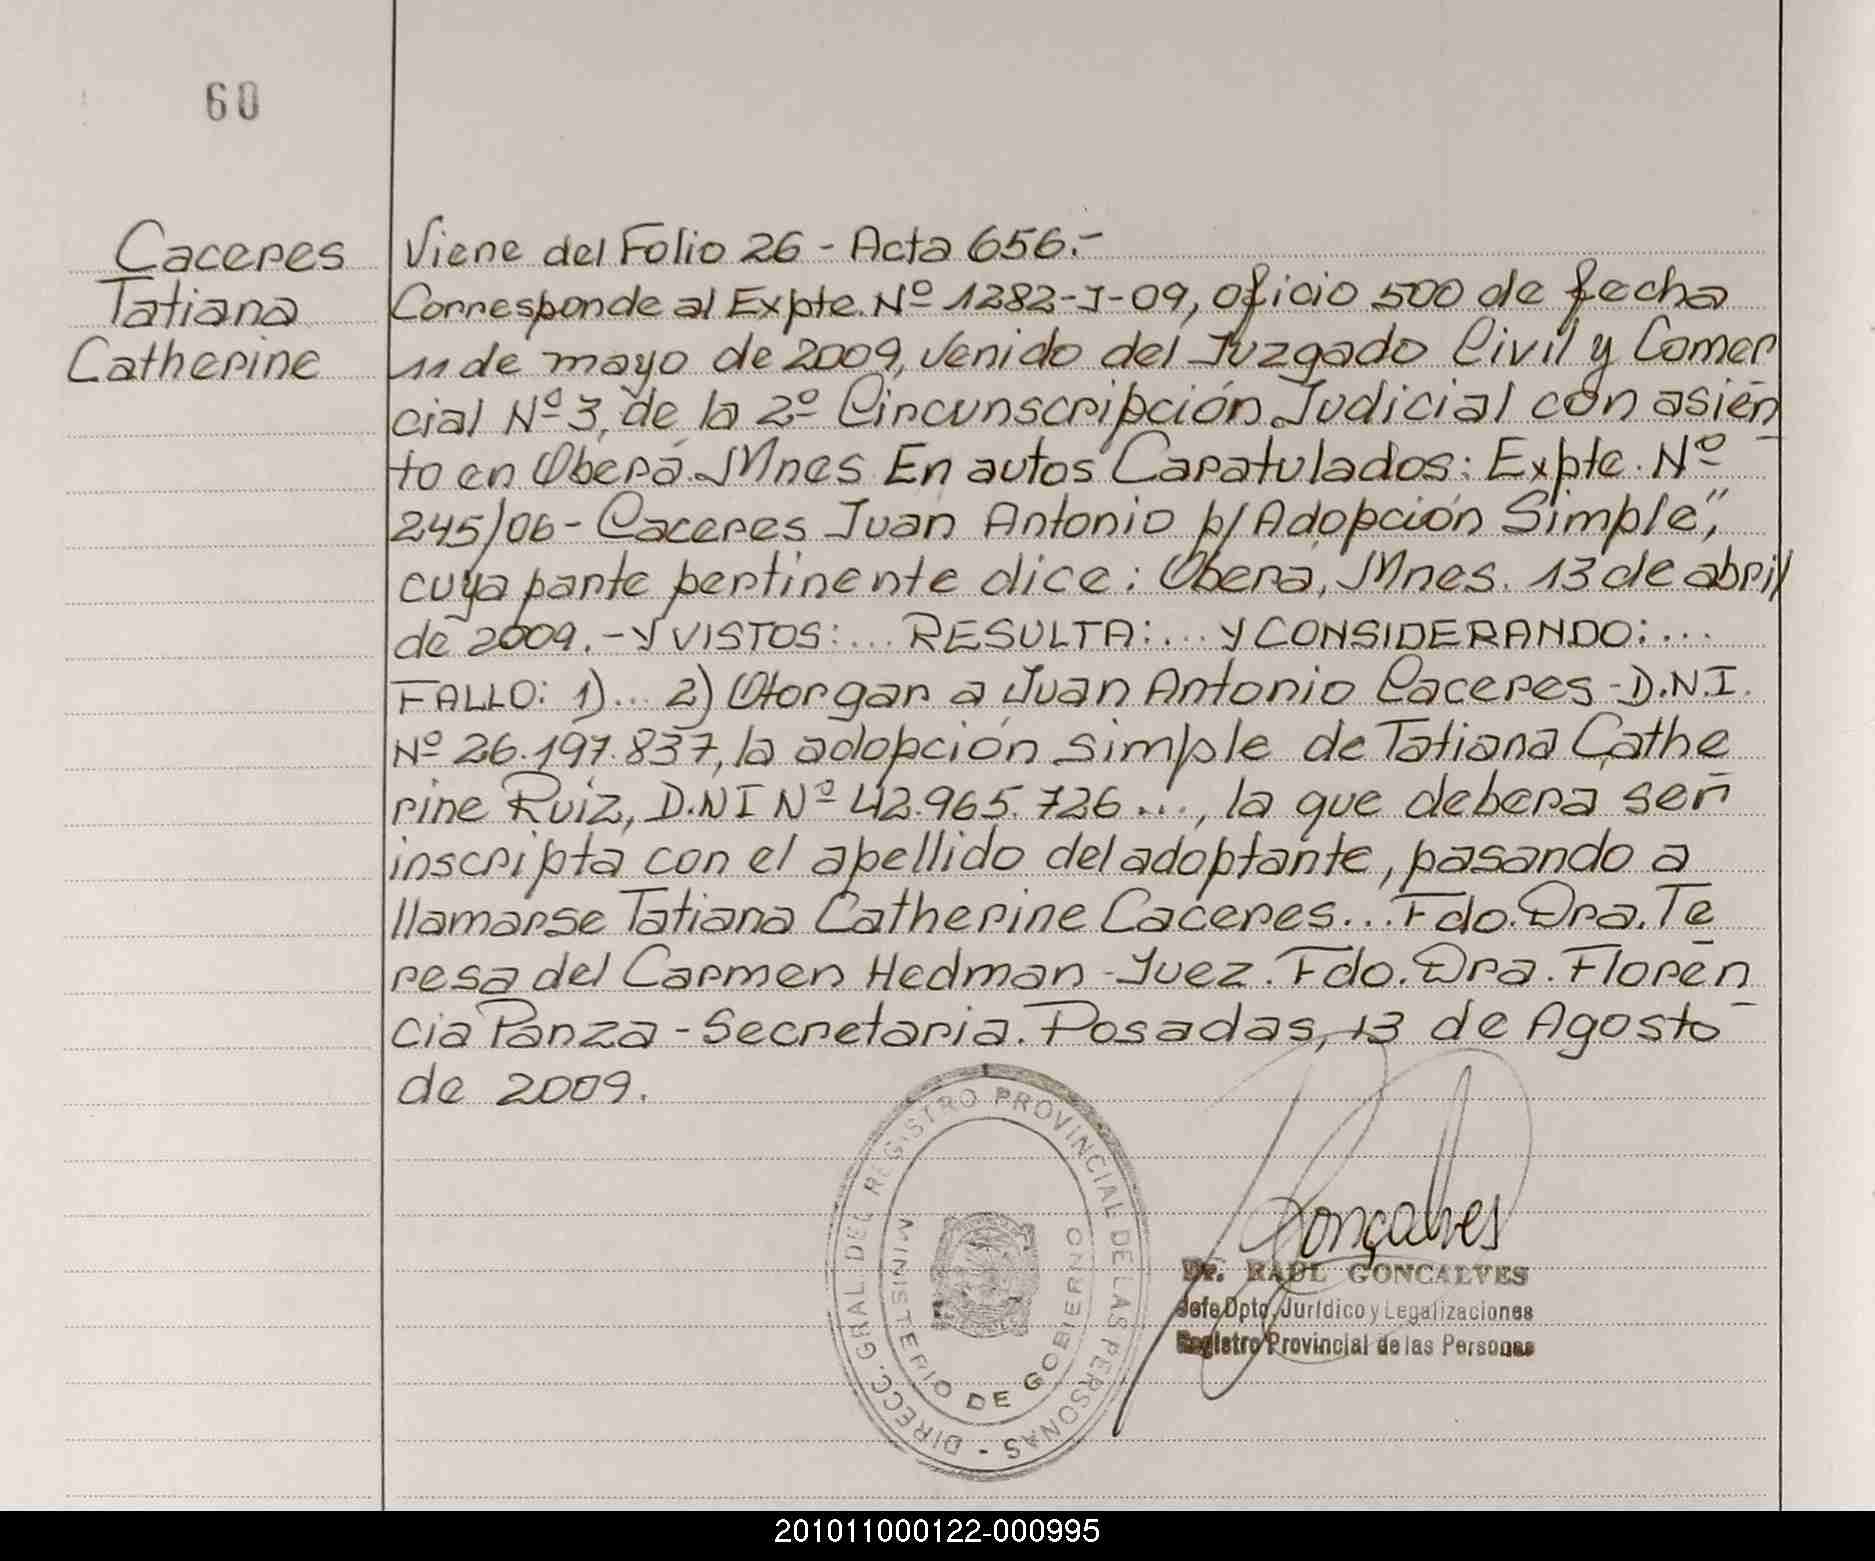 60
Caceres
Tatiana
Catherine
Viene del Folio 26 - Acta 656.-
Corresponde al Expte. Nº 1282-J-09, oficio 500 de fecha
11 de mayo de 2009, venido del Juzgado Civil y Comer
cial Nº 3, de la 2º Circunscripción Judicial con asien
to en Oberá. Mnes. En autos Caratulados: Expte. Nº
245/06 - Caceres Juan Antonio p/ Adopción Simple",
cuya parte pertinente dice: Oberá, Mnes. 13 de abril
de 2009. - Y VISTOS:... RESULTA:... Y CONSIDERANDO:...
FALLO: 1)... 2) Otorgar a Juan Antonio Caceres - D.N.I.
Nº 26.197.837, la adopción simple de Tatiana Cathe
rine Ruiz, D.NI Nº 42.965.726..., la que debera ser
inscripta con el apellido del adoptante, pasando a
llamarse Tatiana Catherine Caceres... Fdo. Dra. Te
resa del Carmen Hedman - Juez. Fdo. Dra. Floren
cia Panza - Secretaria. Posadas, 13 de Agosto
de 2009.
DIRECC. GRAL. DEL REGISTRO PROVINCIAL DE LAS PERSONAS -
MINISTERIO DE GOBIERNO
Gonçalves
Dr. RAUL GONCALVES
Jefe Dpto. Jurídico y Legalizaciones
Registro Provincial de las Personas
201011000122-000995